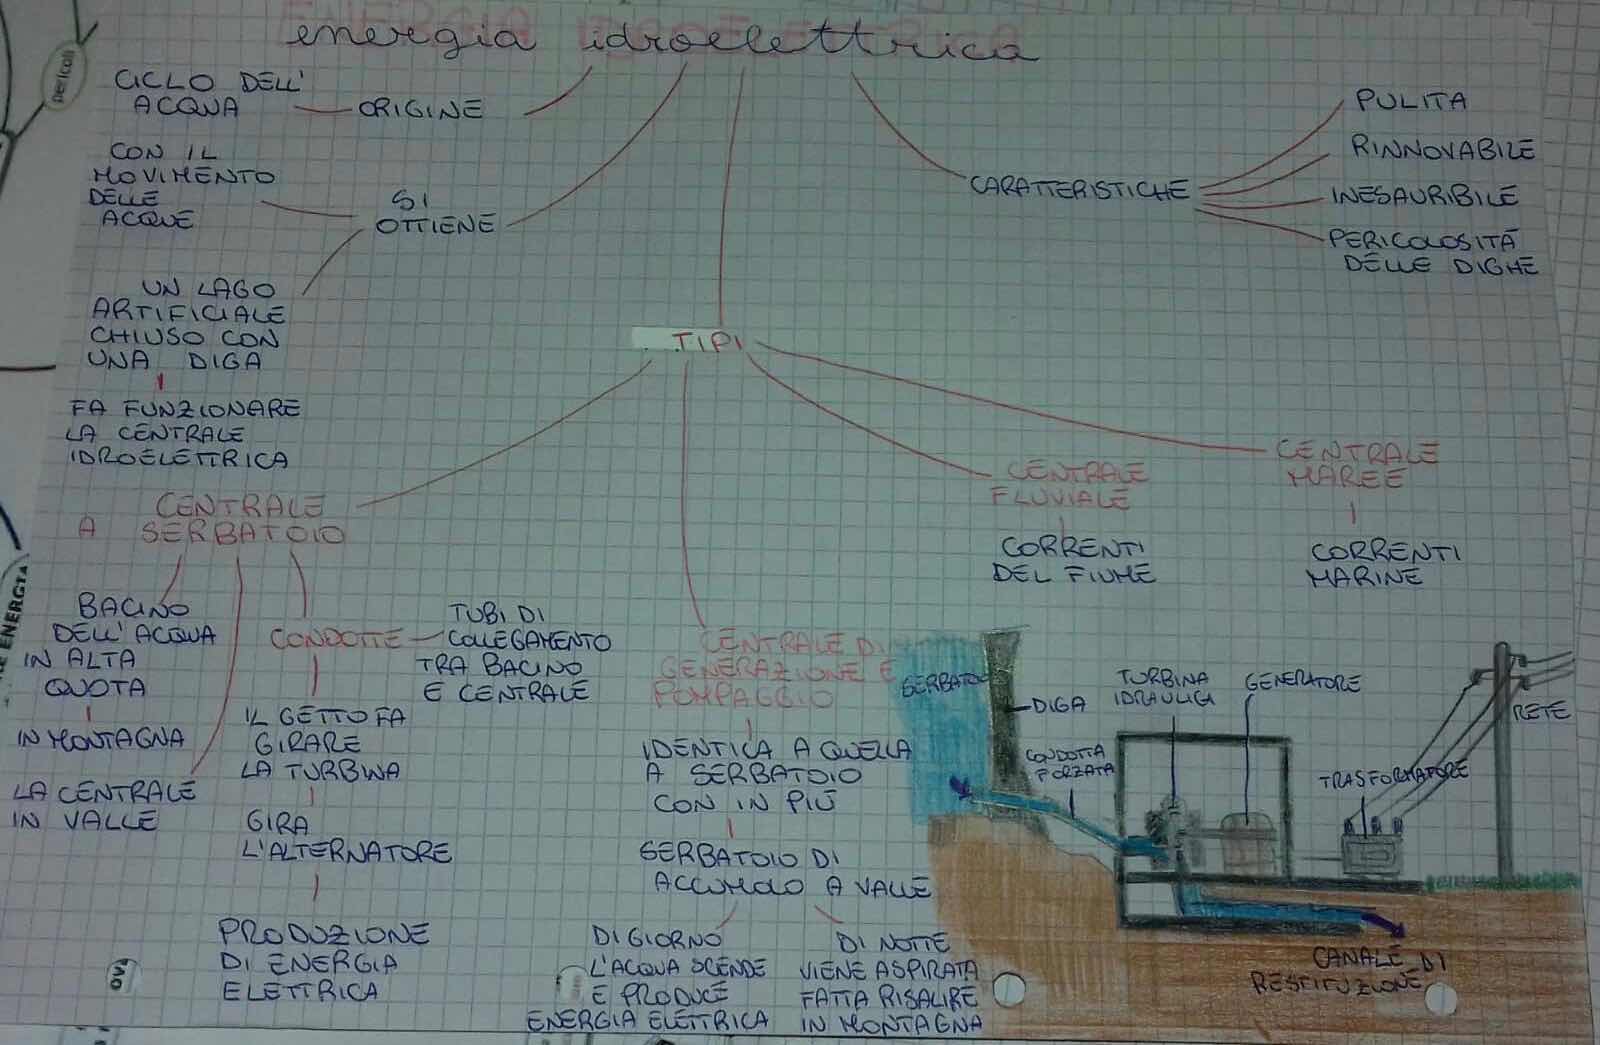 energia idroelettrica
CICLO DELL'
ACQUA
ORIGINE
CON IL
MOVIMENTO
DELLE
ACQUE
SI
OTTIENE
UN LAGO
ARTIFICIALE
CHIUSO CON
UNA DIGA
FA FUNZIONARE
LA CENTRALE
IDROELETTRICA
CARATTERISTICHE
PULITA
RINNOVABILE
INESAURIBILE
PERICOLOSITÁ
DELLE DIGHE
TIPI
CENTRALE
A SERBATOIO
BACINO
DELL'ACQUA
IN ALTA
QUOTA
IN MONTAGNA
LA CENTRALE
IN VALLE
CONDOTTE
TUBI DI
COLLEGAMENTO
TRA BACINO
E CENTRALE
IL GETTO FA
GIRARE
LA TURBINA
GIRA
L'ALTERNATORE
PRODUZIONE
DI ENERGIA
ELETTRICA
CENTRALE DI
GENERAZIONE E
POMPAGGIO
IDENTICA A QUELLA
A SERBATOIO
CON IN PIÚ
SERBATOIO DI
ACCUMOLO A VALLE
DI GIORNO
L'ACQUA SCENDE
E PRODUCE
ENERGIA ELETTRICA
DI NOTTE
VIENE ASPIRATA
FATTA RISALIRE
IN MONTAGNA
CENTRALE
FLUVIALE
CORRENTI
DEL FIUME
CENTRALE
MAREE
CORRENTI
MARINE
DIGA
CONDOTTA
FORZATA
TURBINA
GENERATORE
TRASFORMATORE
RETE
CANALE DI
RESTITUZIONE
pericoli
ENERGIA